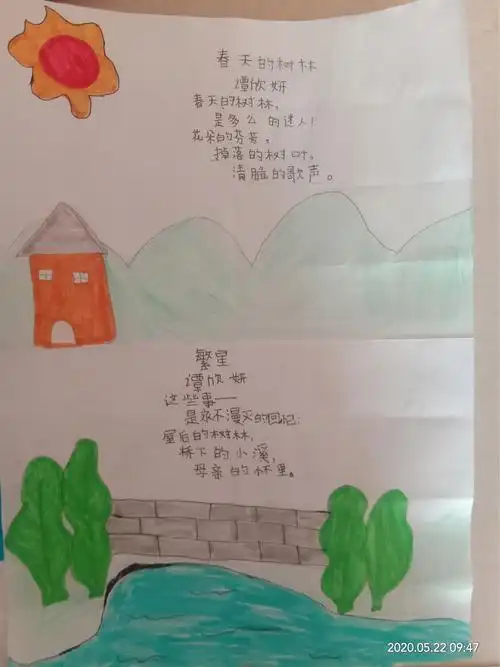 春天的树林
谭欣妍
春天的树林,
是多么的迷人!
花朵的芬芳,
掉落的树叶,
清脆的歌声。
繁星
谭欣妍
这些事——
是永不漫灭的回忆:
屋后的树林,
桥下的小溪,
母亲的怀里。
2020.05.22 09:47